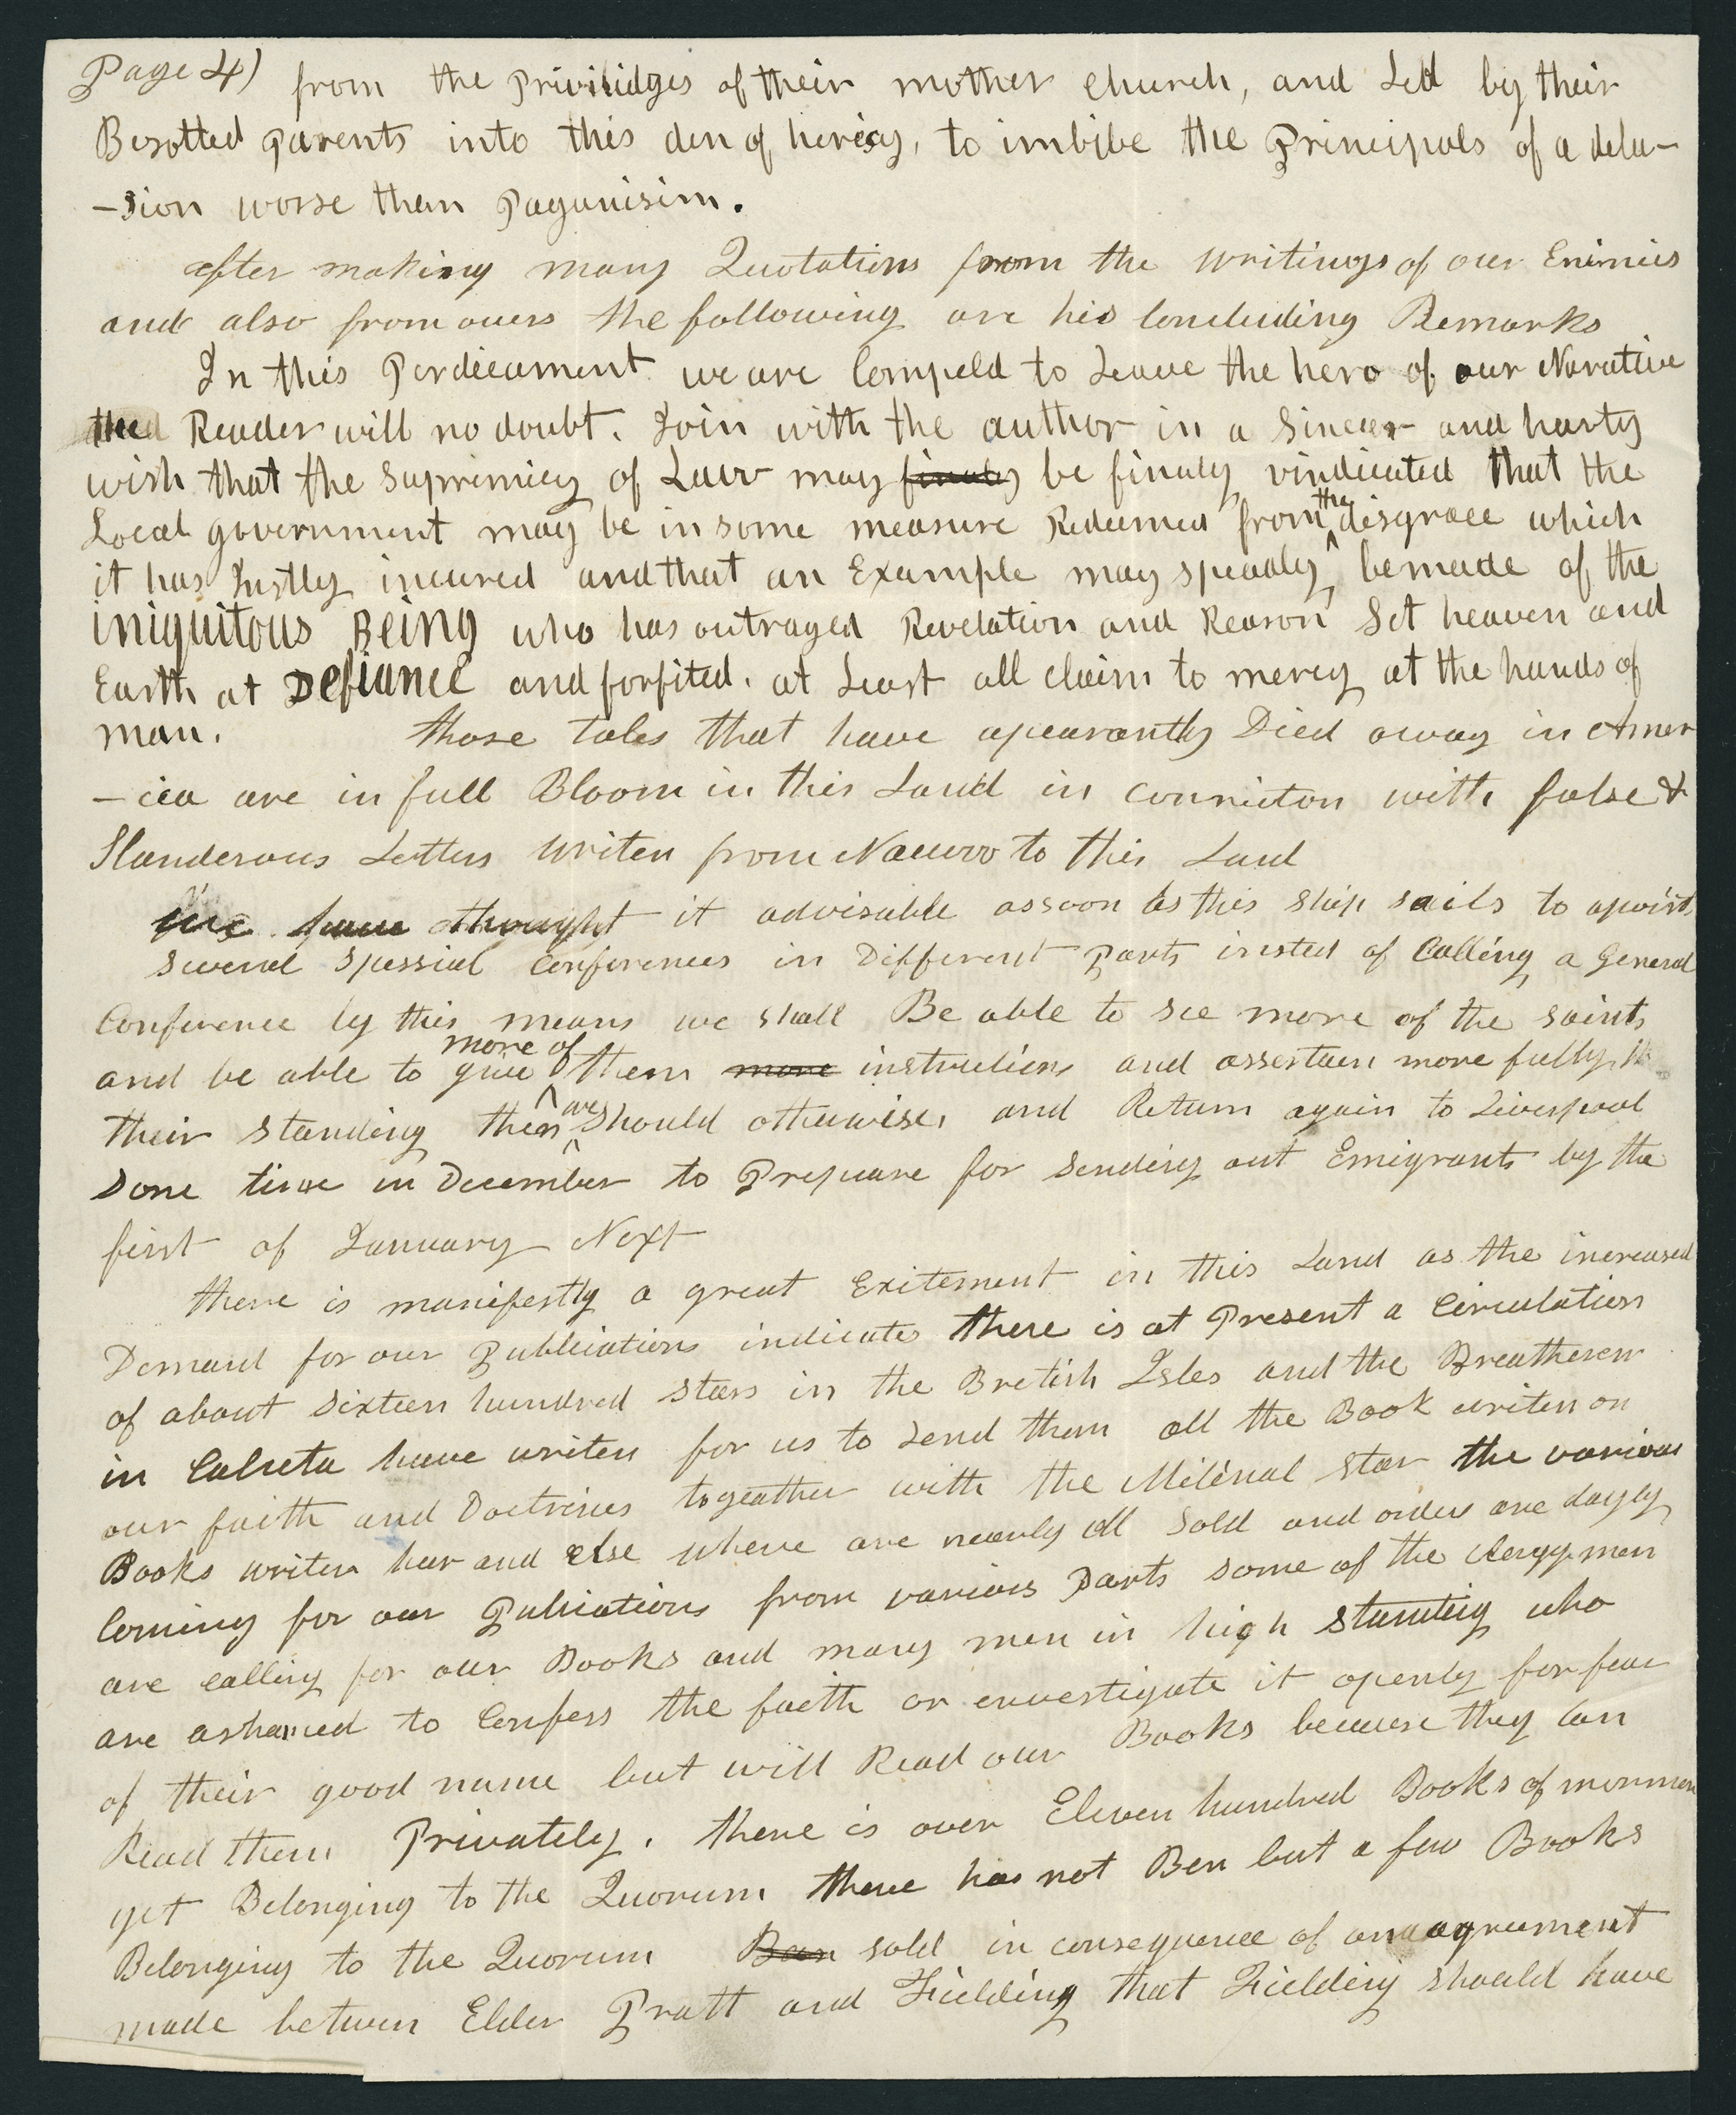 Page 4) from the Privilidges of their mother church, and Led by their
Besotted parents into this den of herisy, to imbibe the Principals of a delu-
-sion worse than Paganisim.
after making many Quotations from the writings of our Enimies
and also from ouers the following are his Concluding Remarks
In this Perdicament we are Compeld to Leave the hero of our Narative
the Reader will no doubt. Join with the author in a Sincer and harty
wish that the Supremicy of Law may finaly be finaly vindicated that the
Local government may be in some measure Redeemed from the disgrace which
it has Justly incured and that an Example may speadily be made of the
iniquitous Being who has outraged Revelation and Reason Set heaven and
Earth at Defiance and forfited. at Least all claim to mercy at the hands of
man. those tales that have apearantly Died away in Amer
-ica are in full Bloom in this Land in connicton with false &
Slanderous Letters writen from Nauvoo to this Land
we have thought it advisable as soon as this ship sails to apoint
several Spessial Conferences in Different parts insted of Calling a General
Conference by this means we shall Be able to see more of the saints
and be able to give more of them more instructions and assertain more fully
their standing then we should otherwise, and Return again to Liverpool
some time in December to Prepare for sending out Emigrants by the
first of January Next
there is manifestly a great Exitement in this Land as the increased
Demand for our Publications indicates there is at Present a Circulation
of about sixteen hundred stars in the British Isles and the Breatheren
in Calcuta have writen for us to send them all the Book writen on
our faith and Doctrines togeather with the Milenal star the various
Books writen hear and else where are nearly all sold and orders are dayly
Coming for our Publications from various Parts some of the clergymen
are calling for our Books and many men in high standing who
are ashamed to Confess the faith or envestigate it openly for fear
of their good name but will Read our Books because they can
Read them Privately. there is over Eleven hundred Books of mormon
yet Belonging to the Quorum there has not Ben but a few Books
Belonging to the Quorum Been sold in consequence of an agreement
made between Elder Pratt and Fielding that Fielding should have